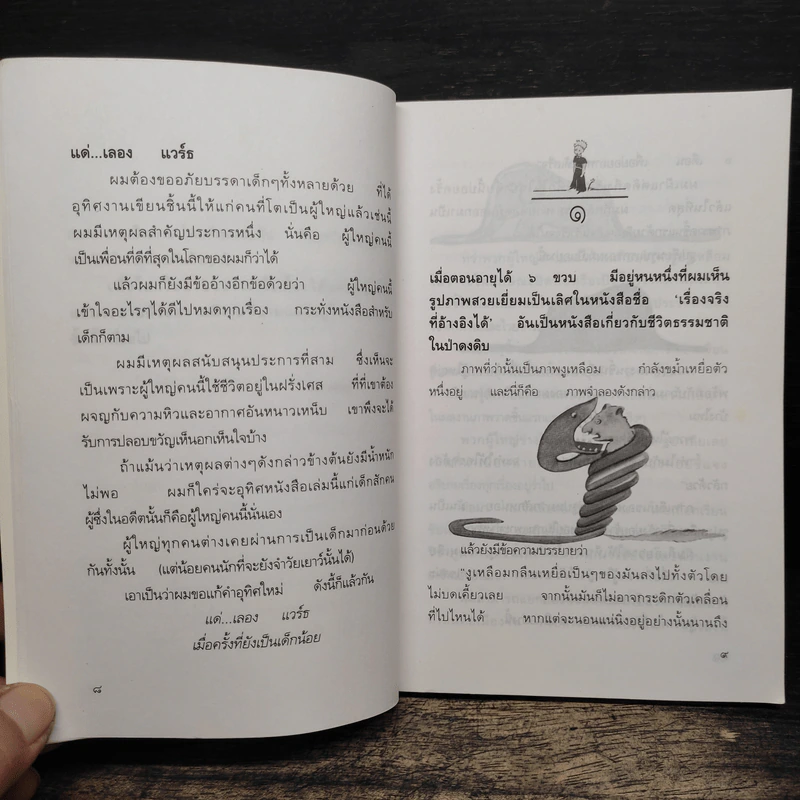 แด่...เลอง แวร์ธ
ผมต้องขออภัยบรรดาเด็กๆทั้งหลายด้วย ที่ได้
อุทิศงานเขียนชิ้นนี้ให้แก่คนที่โตเป็นผู้ใหญ่แล้วเช่นนี้
ผมมีเหตุผลสำคัญประการหนึ่ง นั่นคือ ผู้ใหญ่คนนี้
เป็นเพื่อนที่ดีที่สุดในโลกของผมก็ว่าได้
แล้วผมก็ยังมีข้ออ้างอีกข้อด้วยว่า ผู้ใหญ่คนนี้
เข้าใจอะไรๆได้ดีไปหมดทุกเรื่อง กระทั่งหนังสือสำหรับ
เด็กก็ตาม
ผมมีเหตุผลสนับสนุนประการที่สาม ซึ่งเห็นจะ
เป็นเพราะผู้ใหญ่คนนี้ใช้ชีวิตอยู่ในฝรั่งเศส ที่ที่เขาต้อง
ผจญกับความหิวและอากาศอันหนาวเหน็บ เขาพึงจะได้
รับการปลอบขวัญเห็นอกเห็นใจบ้าง
ถ้าแม้นว่าเหตุผลต่างๆดังกล่าวข้างต้นยังมีน้ำหนัก
ไม่พอ ผมก็ใคร่จะอุทิศหนังสือเล่มนี้แก่เด็กสักคน
ผู้ซึ่งในอดีตนั้นก็คือผู้ใหญ่คนนี้นั่นเอง
ผู้ใหญ่ทุกคนต่างเคยผ่านการเป็นเด็กมาก่อนด้วย
กันทั้งนั้น (แต่น้อยคนนักที่จะยังจำวัยเยาว์นั้นได้)
เอาเป็นว่าผมขอแก้คำอุทิศใหม่ ดังนี้ก็แล้วกัน
แด่...เลอง แวร์ธ
เมื่อครั้งที่ยังเป็นเด็กน้อย
๘
๑
เมื่อตอนอายุได้ ๖ ขวบ มีอยู่หนหนึ่งที่ผมเห็น
รูปภาพสวยเยี่ยมเป็นเลิศในหนังสือชื่อ 'เรื่องจริง
ที่อ้างอิงได้' อันเป็นหนังสือเกี่ยวกับชีวิตธรรมชาติ
ในป่าดงดิบ
ภาพที่ว่านั้นเป็นภาพงูเหลือม กำลังขม้ำเหยื่อตัว
หนึ่งอยู่ และนี่ก็คือ ภาพจำลองดังกล่าว
แล้วยังมีข้อความบรรยายว่า
"งูเหลือมกลืนเหยื่อเป็นๆของมันลงไปทั้งตัวโดย
ไม่บดเคี้ยวเลย จากนั้นมันก็ไม่อาจกระดิกตัวเคลื่อน
ที่ไปไหนได้ หากแต่จะนอนแน่นิ่งอยู่อย่างนั้นนานถึง
๙